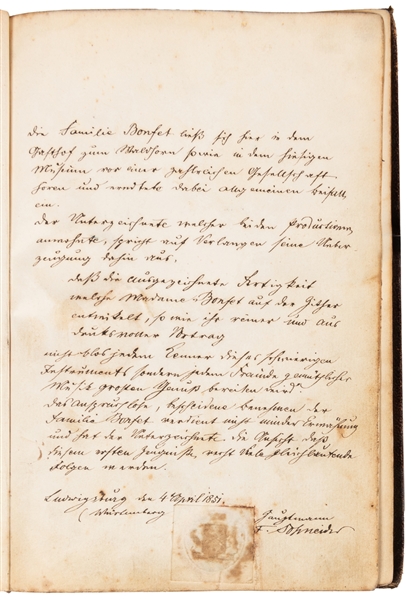 Die Familie Bonset ließ sich hier in dem
Gasthof zum Waldhorn sowie in dem hiesigen
Museum vor einer zahlreichen Gesellschaft
hören und erndtete dabei allgemeinen Beifall
ein.
Der Unterzeichnete welcher beiden Productionen
anwohnte, spricht auf Verlangen seine Ueber-
zeugung dahin aus,
daß die ausgezeichnete Fertigkeit
welche Madame Bonset auf der Zither
entwickelt, so wie ihr reiner und aus
drucksvoller Vortrag
nicht blos jedem Kenner dieses schwierigen
Instruments sondern jedem Freunde gemüthlicher
Musik großen Genuß bereiten wird.
Das anspruchlose, bescheidene Benehmen der
Familie Bonset verdient nicht minder Erwähnung
und hat der Unterzeichnete die daß
diesem ersten Zeugnisse, recht viele gleichlautende
folgen werden.
Ludwigsburg den 4 April 1851.
Würtemberg
Hauptmann
F. Schneider